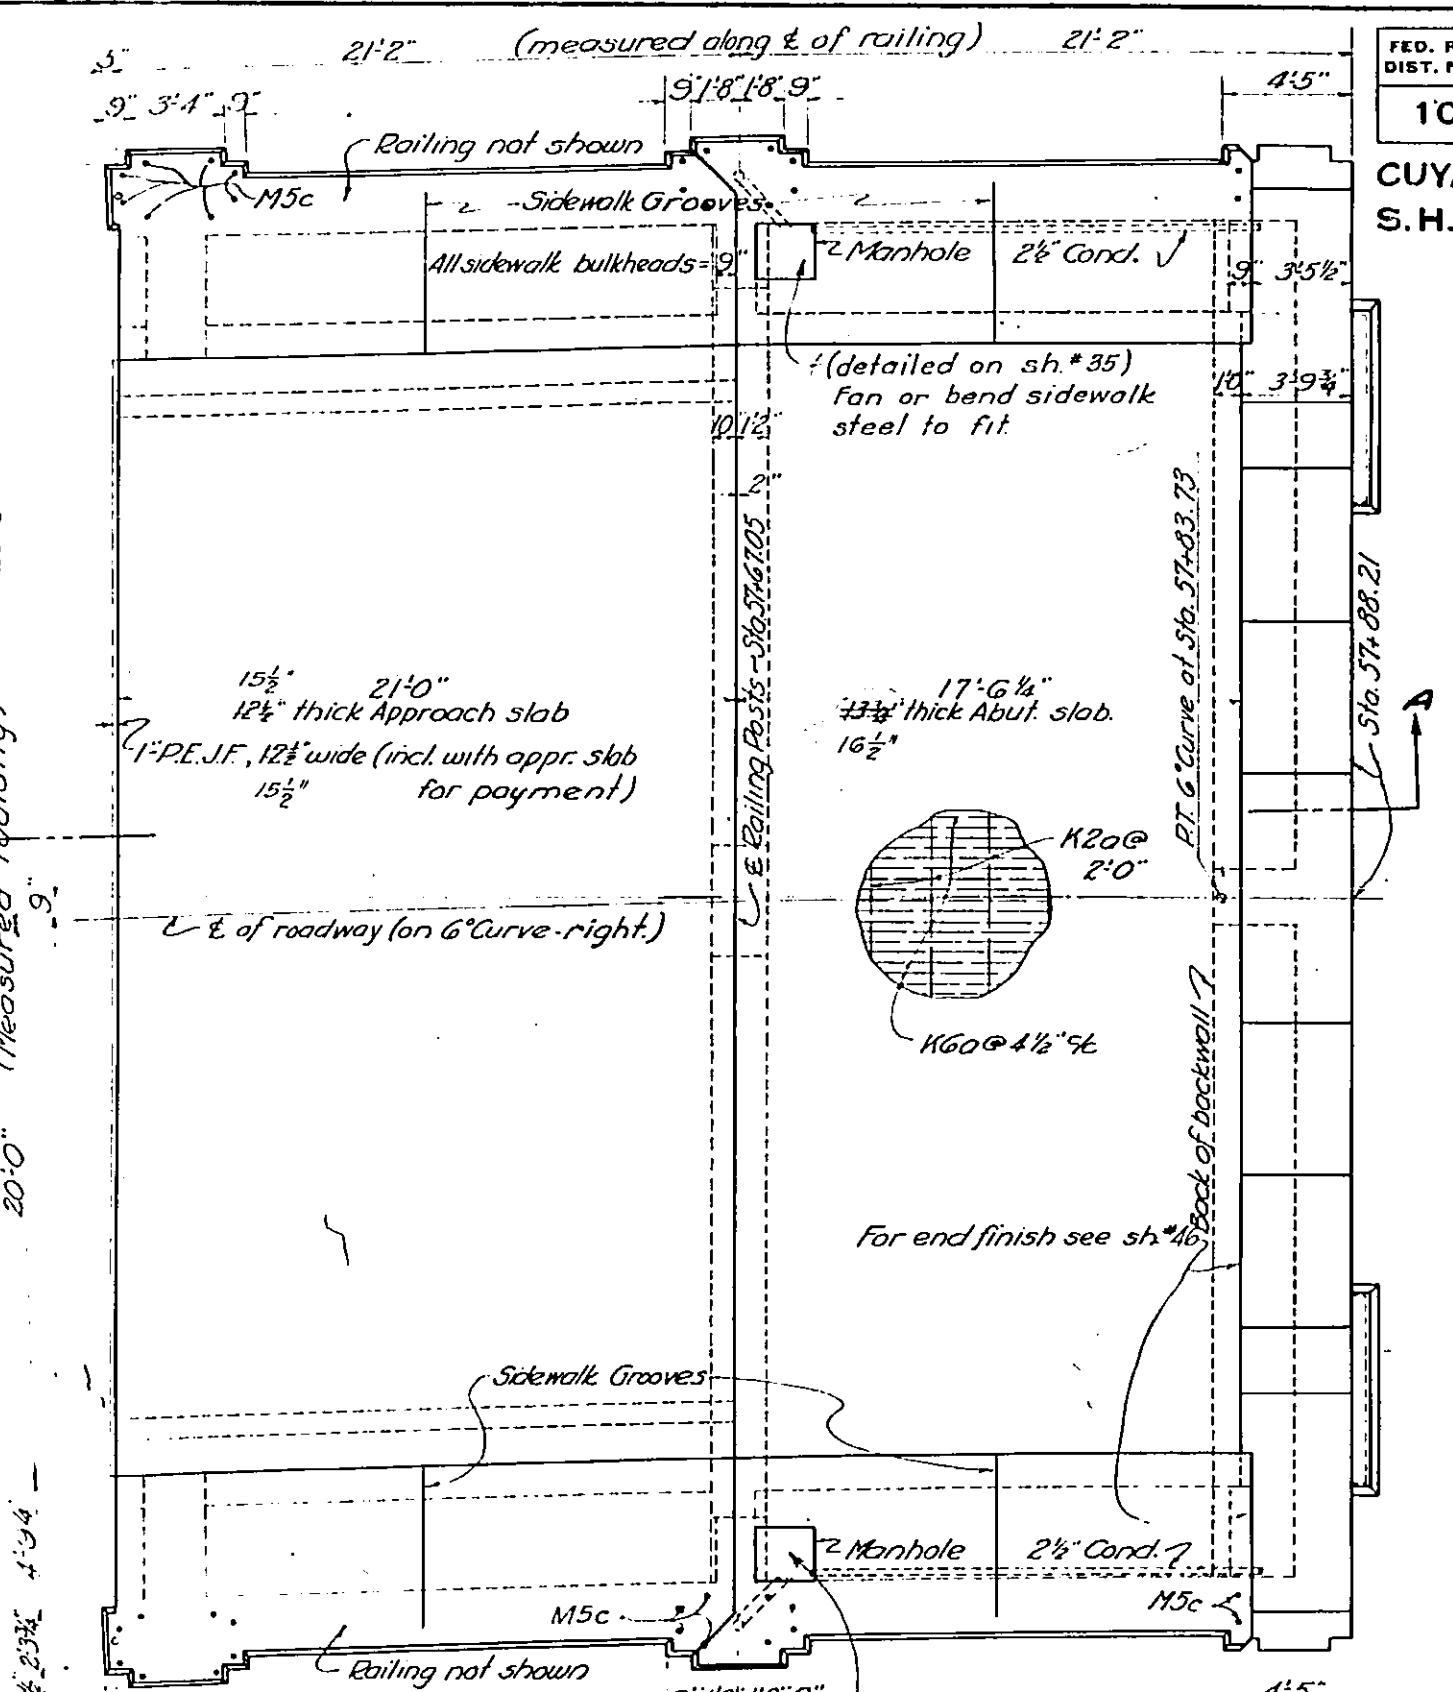 5" 21'-2" (measured along ℄ of railing) 21'-2"
FED. R
DIST. N
10
9" 3'-4" 9"
9" 1'-8" 1'-8" 9"
4'-5"
CUYA
S.H.
Railing not shown
M5c
Sidewalk Grooves
All sidewalk bulkheads=9"
Manhole 2½" Cond.
9" 3'-5½"
(detailed on sh.#35)
Fan or bend sidewalk
steel to fit.
1'0" 3'-9¾"
10" 1'2"
2"
℄ Railing Posts-Sta. 57+67.05
P.T. 6°Curve at Sta. 57+83.73
Sta. 57+88.21
15½" 21'-0"
12½" thick Approach slab
1"-P.E.J.F., 12½" wide (incl. with appr. slab
15½" for payment)
17'-6¼"
thick Abut. slab.
16½"
A
K2a@
2'-0"
9"
℄ of roadway (on 6°Curve-right.)
K6a@4½" %
20'-0" (Measured
Back of backwall
For end finish see sh.#46
Sidewalk Grooves
Manhole 2½" Cond.
M5c
M5c
Railing not shown
2'3¾"
4'-5"